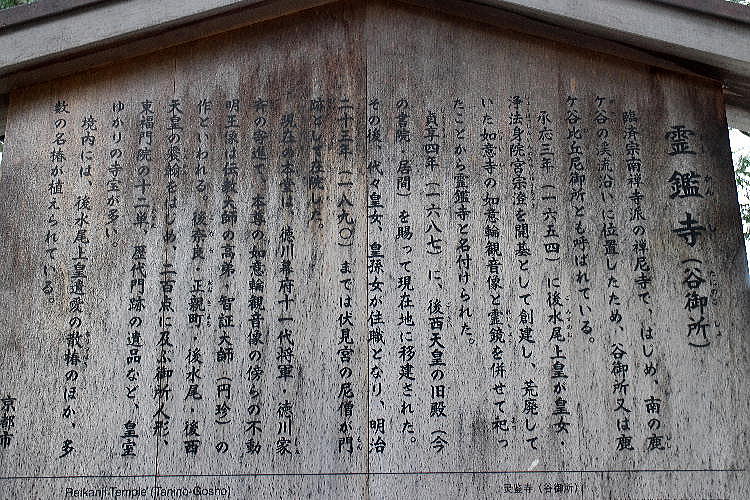 霊鑑寺（谷御所）
臨済宗南禅寺派の禅尼寺で、はじめ、南の鹿
ケ谷の渓流沿いに位置したため、谷御所又は鹿
ケ谷比丘尼御所とも呼ばれている。
承応三年（一六五四）に後水尾上皇が皇女・
浄法身院宮宗澄を開基として創建し、荒廃して
いた如意寺の如意輪観音像と霊鏡を併せて祀っ
たことから霊鑑寺と名付けられた。
貞享四年（一六八七）に、後西天皇の旧殿（今
の書院・居間）を賜って現在地に移建された。
その後、代々皇女、皇孫女が住職となり、明治
二十三年（一八九〇）までは伏見宮の尼僧が門
跡として在院した。
現在の本堂は、徳川幕府十一代将軍・徳川家
斉の寄進で、本尊の如意輪観音像の傍らの不動
明王像は伝教大師の高弟・智証大師（円珍）の
作といわれる。後奈良・正親町・後水尾・後西
天皇の宸翰をはじめ、二百点に及ぶ御所人形、
東福門院の十二単、歴代門跡の遺品など、皇室
ゆかりの寺宝が多い。
境内には、後水尾上皇遺愛の散椿のほか、多
数の名椿が植えられている。
京都市
Reikanji Temple (Tanino-Gosho)
灵鉴寺（谷御所）